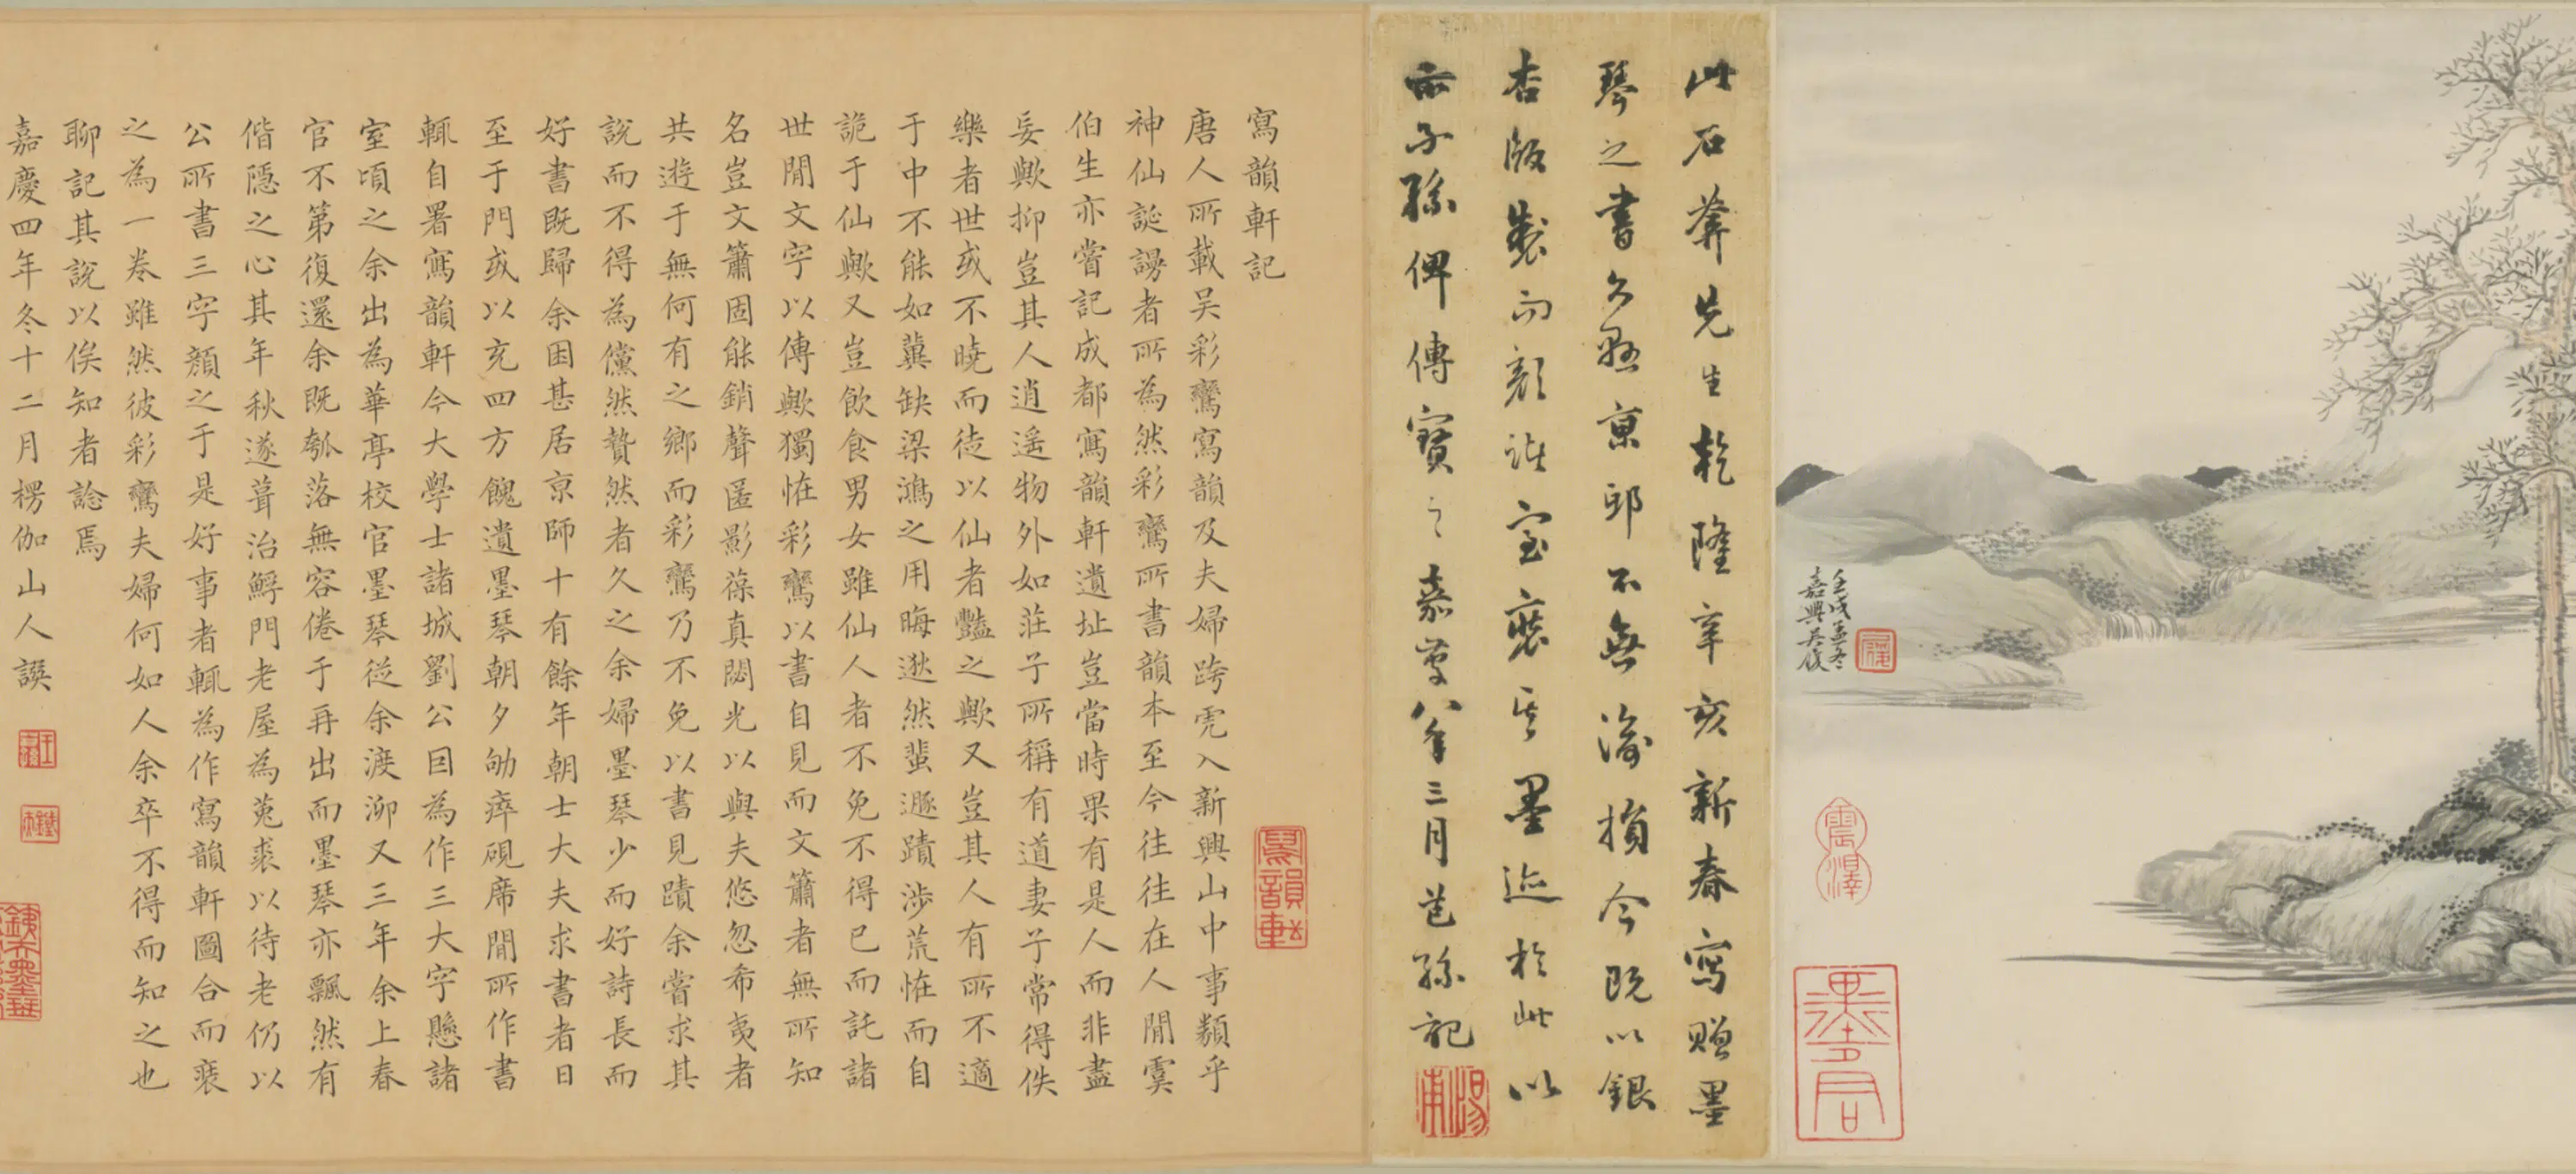 壬戌孟冬
嘉興吳履
震澤
此石菴先生乾隆辛亥新春寫贈墨
琴之書久懸東邱不無渝損今既以銀
杏版製而顏諸室裝其墨迹於此以
示子孫俾傳寶之嘉慶八年三月芑孫記
寫韻軒
寫韻軒記
唐人所載吴彩鸞寫韻及夫婦跨虎入新興山中事類乎
神仙誕謾者所為然彩鸞所書韻本至今往往在人閒虞
伯生亦嘗記成都寫韻軒遺址豈當時果有是人而非盡
妄歟抑豈其人逍遥物外如莊子所稱有道妻子常得佚
樂者世或不曉而徒以仙者豔之歟又豈其人有所不適
于中不能如冀缺梁鴻之用晦逖然蜚遯蹟涉荒怪而自
詭于仙歟又豈飲食男女雖仙人者不免不得已而託諸
世閒文字以傳歟獨怪彩鸞以書自見而文簫者無所知
名豈文簫固能銷聲匿影葆真閟光以與夫悠忽希夷者
共遊于無何有之鄉而彩鸞乃不免以書見蹟余嘗求其
說而不得為儻然贅然者久之余婦墨琴少而好詩長而
好書既歸余困甚居京師十有餘年朝士大夫求書者日
至于門或以充四方餽遺墨琴朝夕劬瘁硯席閒所作書
輒自署寫韻軒今大學士諸城劉公因為作三大字懸諸
室頃之余出為華亭校官墨琴從余渡泖又三年余上春
官不第復還余既瓠落無容倦于再出而墨琴亦飄然有
偕隱之心其年秋遂葺治鱘門老屋為菟裘以待老仍以
公所書三字顏之于是好事者輒為作寫韻軒圖合而裝
之為一卷雖然彼彩鸞夫婦何如人余卒不得而知之也
聊記其說以俟知者諗焉
嘉慶四年冬十二月楞伽山人譔